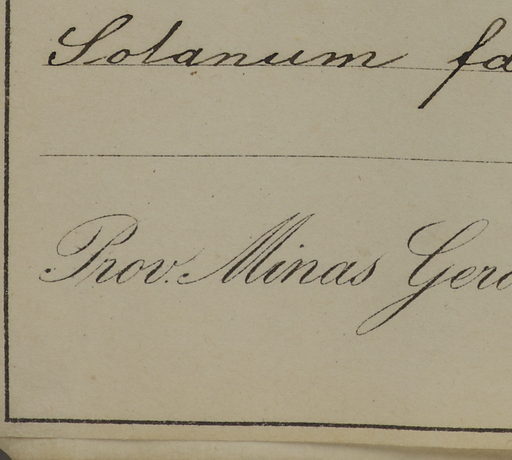 Solanum fa
Prov. Minas Gera